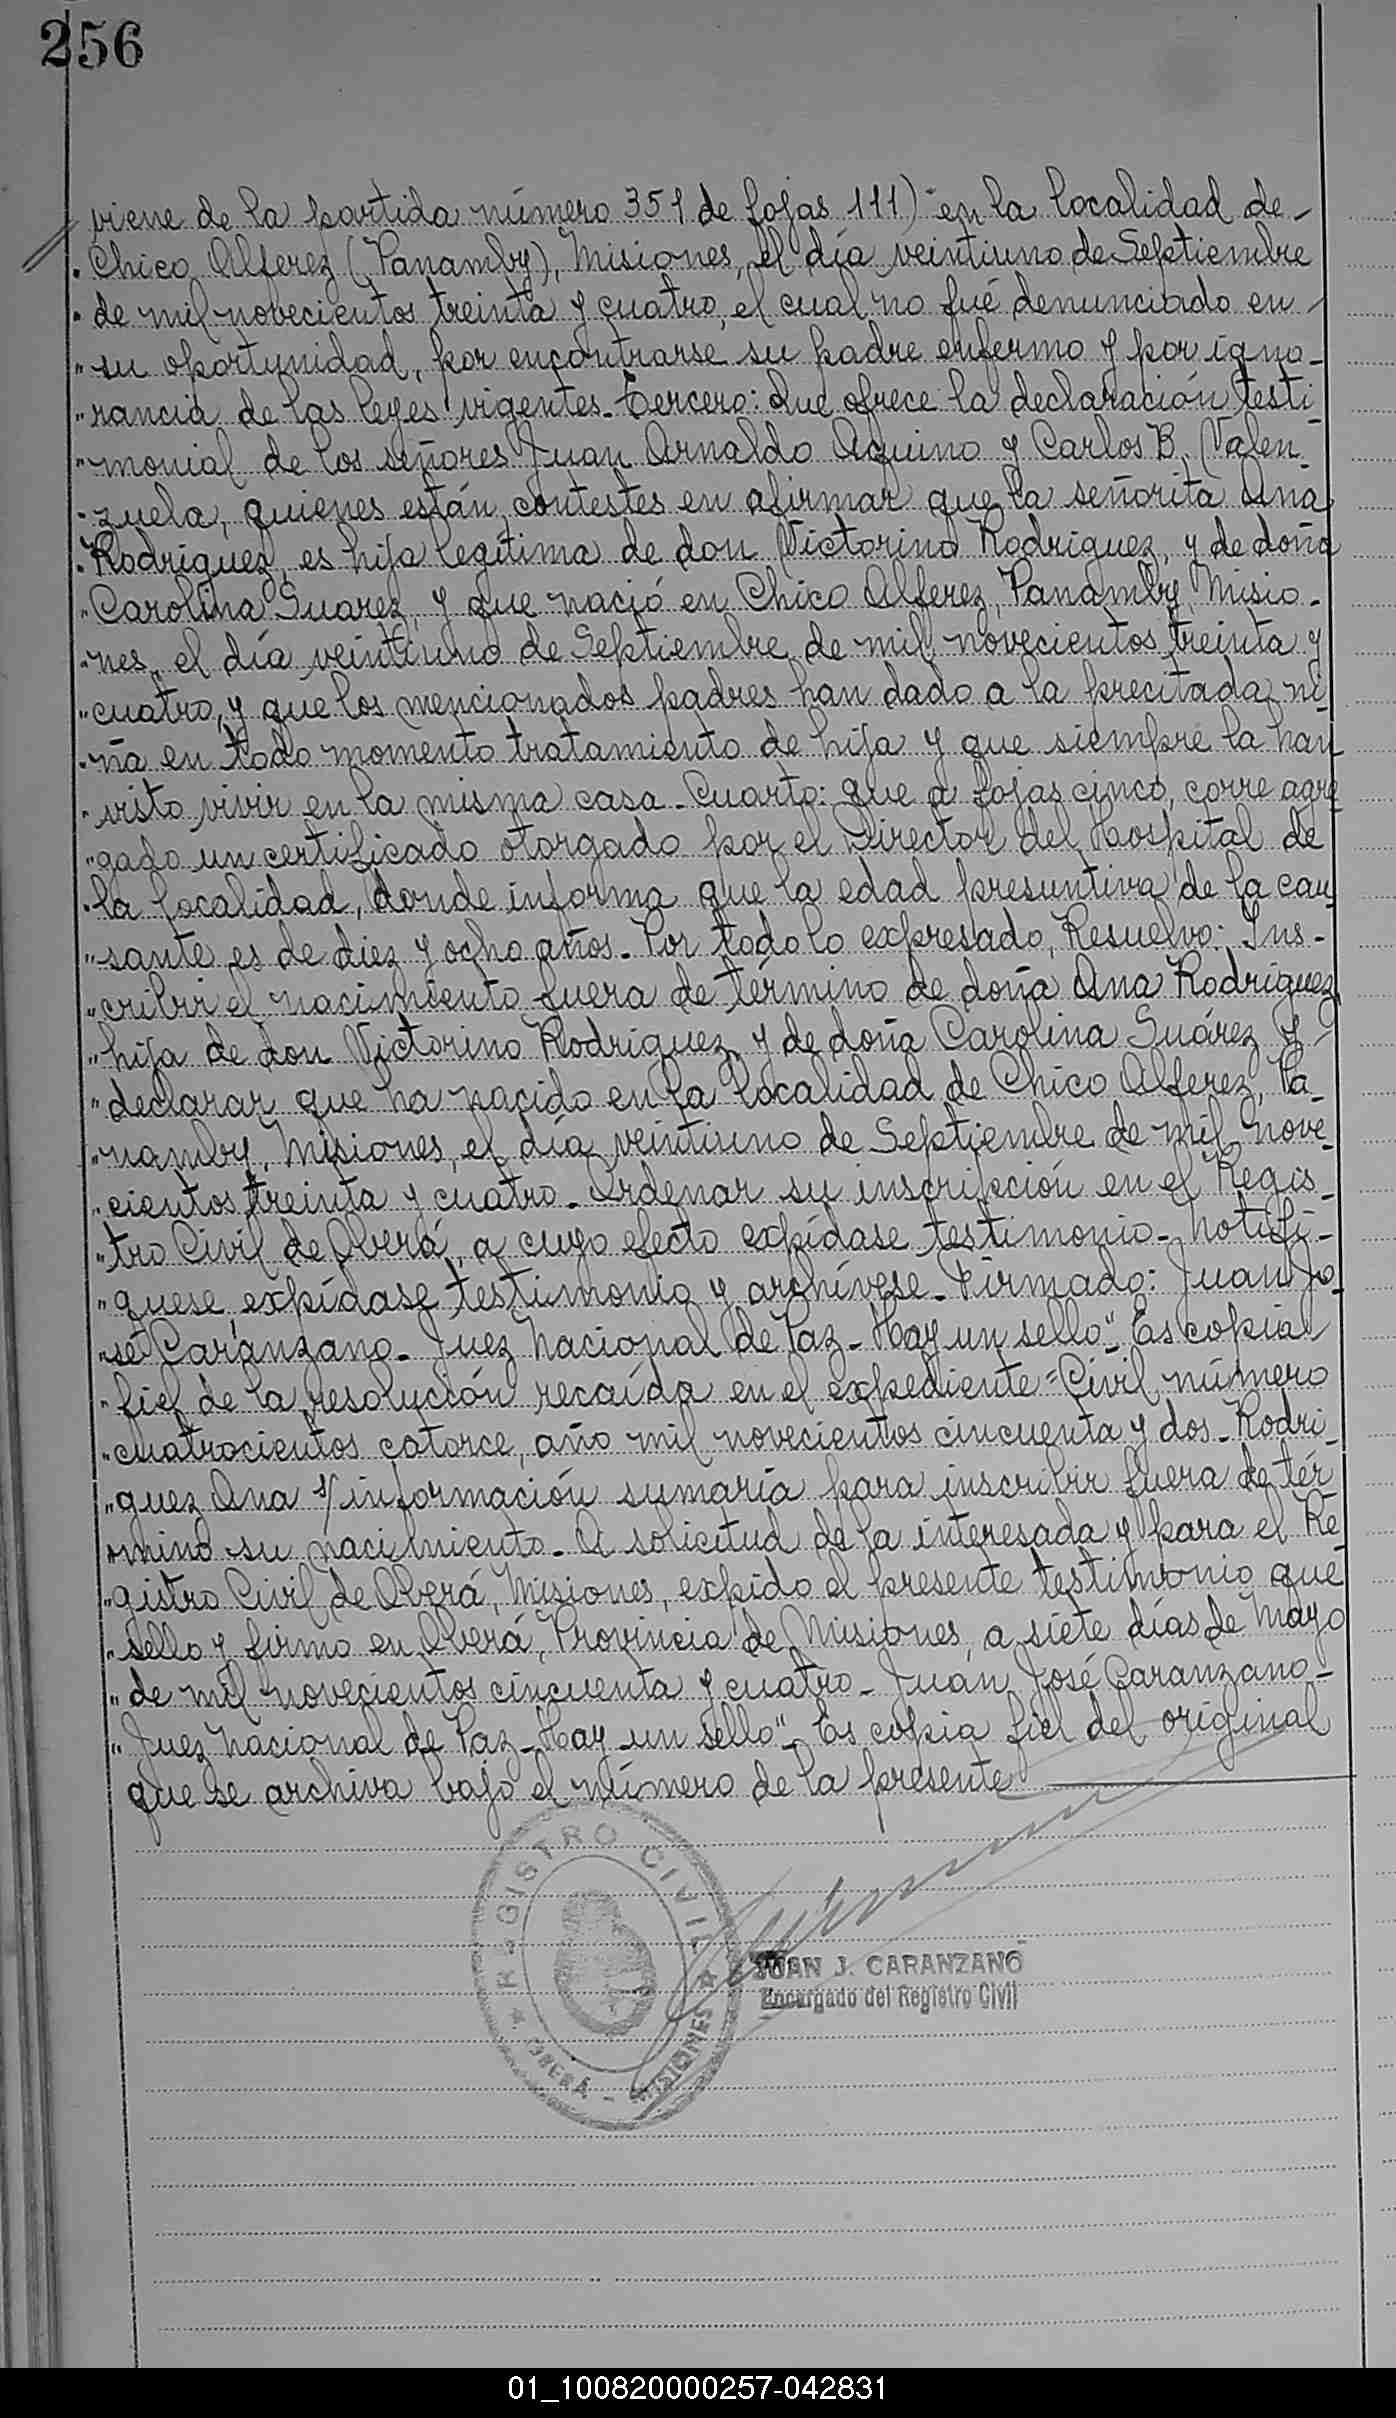 256
viene de la partida número 351 de fojas 111) "en la localidad de-
" Chico Alferez (Panamby), Misiones, el día veintiuno de Septiembre
" de mil novecientos treinta y cuatro, el cual no fué denunciado en
" su oportunidad, por encontrarse su padre enfermo y por igno-
" rancia de las leyes vigentes.- Tercero: Que ofrece la declaración testi
" monial de los señores Juan Arnaldo Aquino y Carlos B. Valen-
" zuela, quienes están contestes en afirmar que la señorita Ana
" Rodriguez, es hija legítima de don Victorino Rodriguez, y de doña
" Carolina Suarez, y que nació en Chico Alferez, Panamby, Misio-
" nes, el día veintiuno de Septiembre de mil novecientos treinta y
" cuatro, y que los mencionados padres han dado a la precitada ni
" ña en todo momento tratamiento de hija y que siempre la han
" visto vivir en la misma casa.- Cuarto: que a fojas cinco, corre agre
" gado un certificado otorgado por el Director del Hospital de
" la localidad, donde informa que la edad presuntiva de la cau
" sante es de diez y ocho años.- Por todo lo expresado, Resuelvo: Ins-
" cribir el nacimiento fuera de término de doña Ana Rodríguez
" hija de don Victorino Rodriguez, y de doña Carolina Suárez y
" declarar que ha nacido en la localidad de Chico Alferez, Pa-
" namby, Misiones, el día veintiuno de Septiembre de mil nove-
" cientos treinta y cuatro.- Ordenar su inscripción en el Regis-
" tro Civil de Oberá, a cuyo efecto expídase testimonio.- Notifí-
" quese, expídase testimonio y archívese.- Firmado: Juan Jo-
" sé Caranzano.- Juez Nacional de Paz.- Hay un sello".- Es copia
" fiel de la resolución recaída en el expediente = Civil número
" cuatrocientos catorce, año mil novecientos cincuenta y dos.- Rodri-
" guez Ana s/ información sumaria para inscribir fuera de tér
" mino su nacimiento.- A solicitud de la interesada y para el Re
" gistro Civil de Oberá, Misiones, expido el presente testimonio que
" sello y firmo en Oberá, Provincia de Misiones, a siete días de Mayo
" de mil novecientos cincuenta y cuatro.- Juan José Caranzano-
" Juez Nacional de Paz.- Hay un sello".- Es copia fiel del original
que se archiva bajo el número de la presente
REGISTRO CIVIL
OBERÁ - MISIONES
JUAN J. CARANZANO
Encargado del Registro Civil
01_100820000257-042831